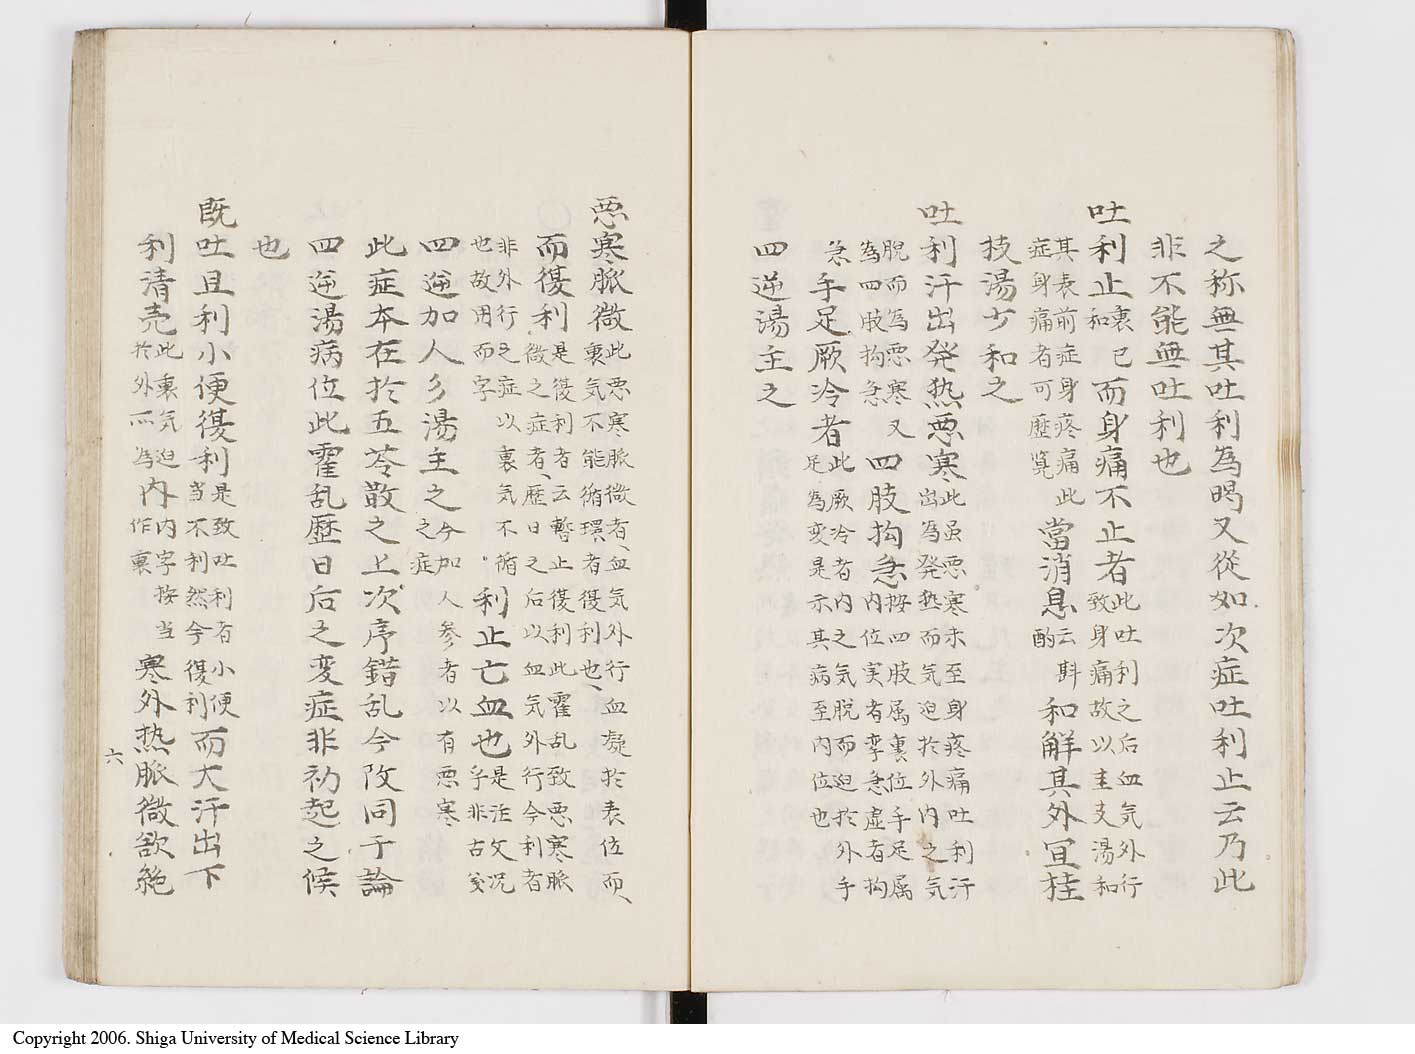 之称無其吐利為暍又從如次症吐利止云乃此
非不能無吐利也
吐利止裏已和而身痛不止者此吐利之后血気外行致身痛故以圭支湯和
其表前症身疼痛此症身痛者可歴覓當消息云斟酌和解其外宜桂
技湯少和之
吐利汗出発热悪寒此虽悪寒未至身疼痛吐利汗出為発热而気迫於外内之気
脱而為悪寒又為四肢拘急四肢拘急按四肢属裏位手足属内位実者攣急虚者拘
急手足厥冷者此厥冷者内之気脱而迫於外手足為変是示其病至内位也
四逆湯主之
悪寒脈微此悪寒脈微者血気外行血凝於表位而裏気不能循環者復利也
而復利是復利者云暫止復利此霍乱致悪寒脈微之症者歴日之后以血気外行今利者
非外行之症以裏気不循也故用而字利止亡血也是注文况乎非古箋
四逆加人参湯主之今加人参者以有悪寒之症
此症本在於五苓散之上次序錯乱今攷同于論
四逆湯病位此霍乱歴日后之変症非初起之候
也
既吐且利小便復利是致吐利者小便當不利然今復利而大汗出下
利清壳此裏気迫於外而為内内字按当作裏寒外热脈微欲絶
六